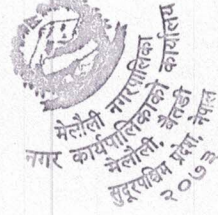 मेलौली नगरपालिका
नगर कार्यपालिकाको कार्यालय
मेलौली, बैतडी
सुदूरपश्चिम प्रदेश, नेपाल
२०७३